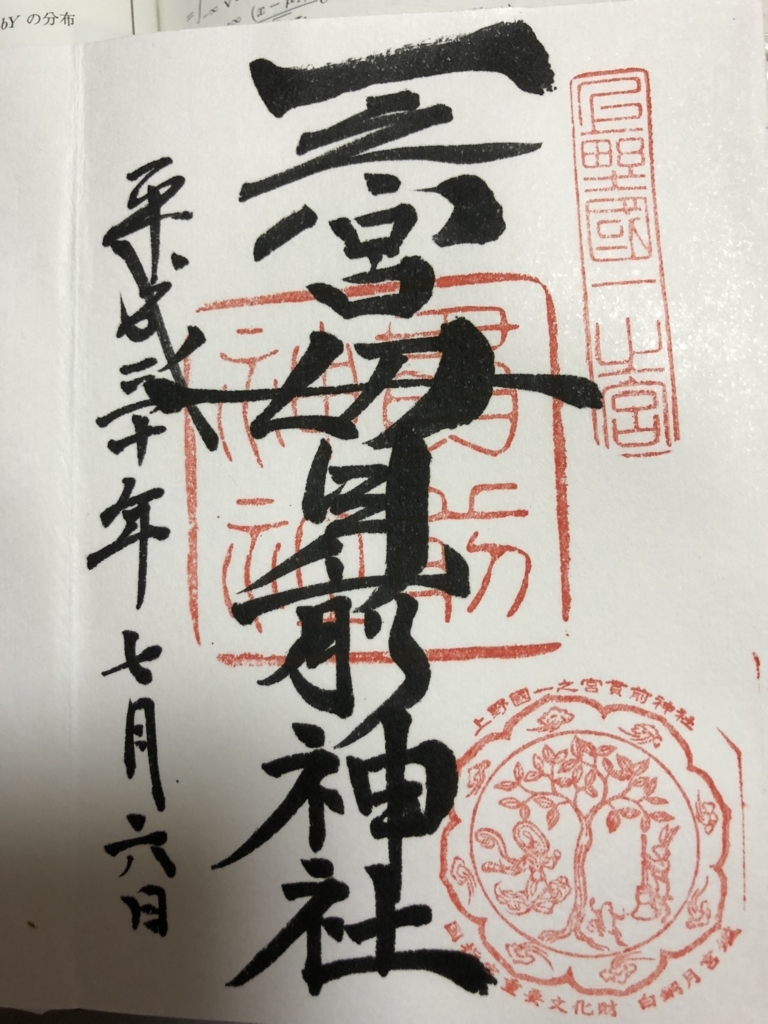 bY の分布
上野國一之宮
一之宮貫前神社
貫前神社
平成三十年七月六日
上野國一之宮貫前神社
重要文化財 白銅月宮鑑